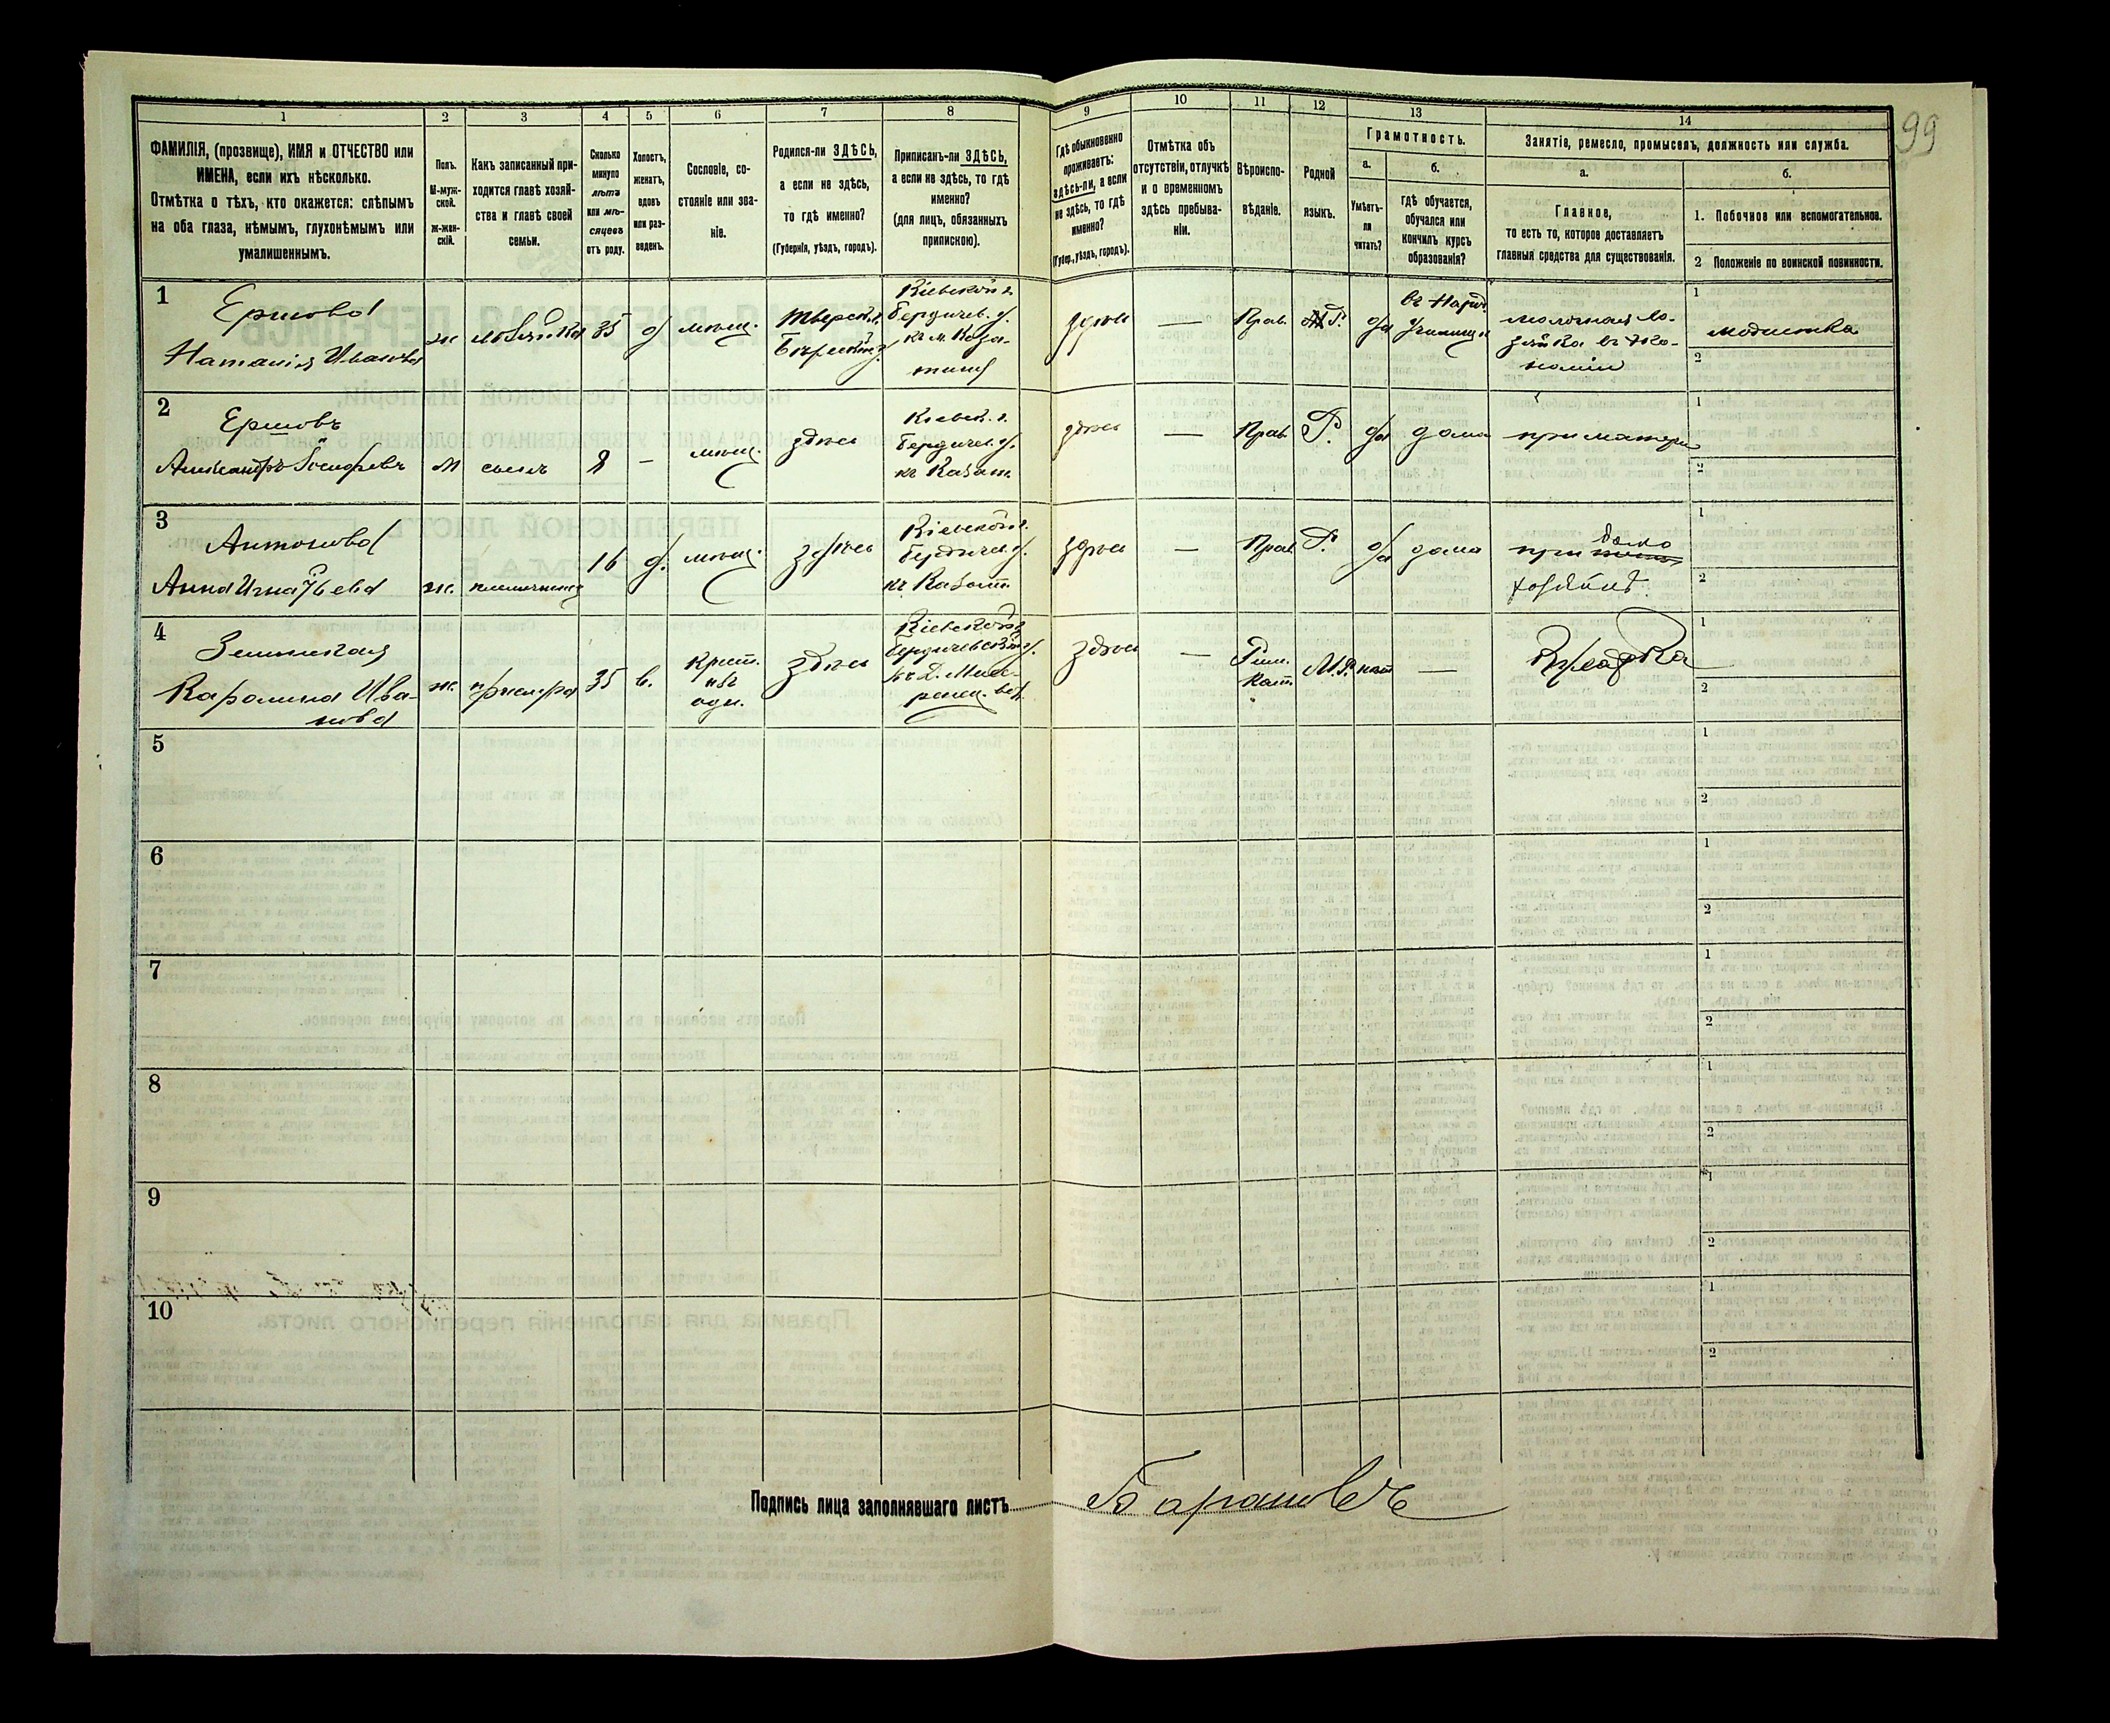 99
1 2 3 4 5 6 7 8 9 10 11 12 13 14
ФАМИЛІЯ, (прозвище), ИМЯ и ОТЧЕСТВО или
ИМЕНА, если ихъ нѣсколько.
Отмѣтка о тѣхъ, кто окажется: слѣпымъ
на оба глаза, нѣмымъ, глухонѣмымъ или
умалишеннымъ.
Полъ.
М-муж-
ской.
ж-жен-
скій.
Какъ записанный при-
ходится главѣ хозяй-
ства и главѣ своей
семьи.
Сколько
минуло
лѣтъ
или мѣ-
сяцевъ
отъ роду.
Холостъ,
женатъ,
вдовъ
или раз-
веденъ.
Сословіе, со-
стояніе или зва-
ніе.
Родился-ли ЗДѢСЬ,
а если не здѣсь,
то гдѣ именно?
(Губернія, уѣздъ, городъ).
Приписанъ-ли ЗДѢСЬ,
а если не здѣсь, то гдѣ
именно?
(для лицъ, обязанныхъ
припискою).
Гдѣ обыкновенно
проживаетъ:
здѣсь-ли, а если
не здѣсь, то гдѣ
именно?
(Губер., уѣздъ, городъ).
Отмѣтка объ
отсутствіи, отлучкѣ
и о временномъ
здѣсь пребыва-
ніи.
Вѣроиспо-
вѣданіе.
Родной
языкъ.
Грамотность.
а.
Умѣетъ-
ли
читать?
б.
гдѣ обучается,
обучался или
кончилъ курсъ
образованія?
Занятіе, ремесло, промыселъ, должность или служба.
а.
Главное,
то есть то, которое доставляетъ
главныя средства для существованія.
б.
1. Побочное или вспомогательное.
2 Положеніе по воинской повинности.
1
Ершова
Наталія Иванова
ж
хозяйка
35
д
мѣщ.
Тверск. г.
Кіевской г.
Бердичев. у.
къ м. Каза-
тину
здѣсь
—
Прав.
Р.
да
въ Народ.
училищѣ
молочная хо-
зяйка въ эко-
номіи
1
модистка
2
2
Ершовъ
Александръ Іосифовъ
м
сынъ
8
—
мѣщ.
здѣсь
Кіевск. г.
Бердичев. у.
къ Казат.
здѣсь
—
Прав.
Р.
да
дома
при матери
1
2
3
Антонова
Анна
ж.
племянница
16
д.
мѣщ.
здѣсь
Кіевской г.
Бердичев. у.
къ Казат.
здѣсь
—
Прав.
Р.
да
дома
при
хозяйкѣ.
1
2
4
Каролина Ива-
нова
ж.
35
в.
Крест.
изъ
одн.
здѣсь
Кіевской г.
Бердичевской у.
здѣсь
—
Рим.
Кат.
М.Р.
нет
—
1
2
5
1
2
6
1
2
7
1
2
8
1
2
9
1
2
10
1
2
Подпись лица заполнявшаго листъ
Барановъ